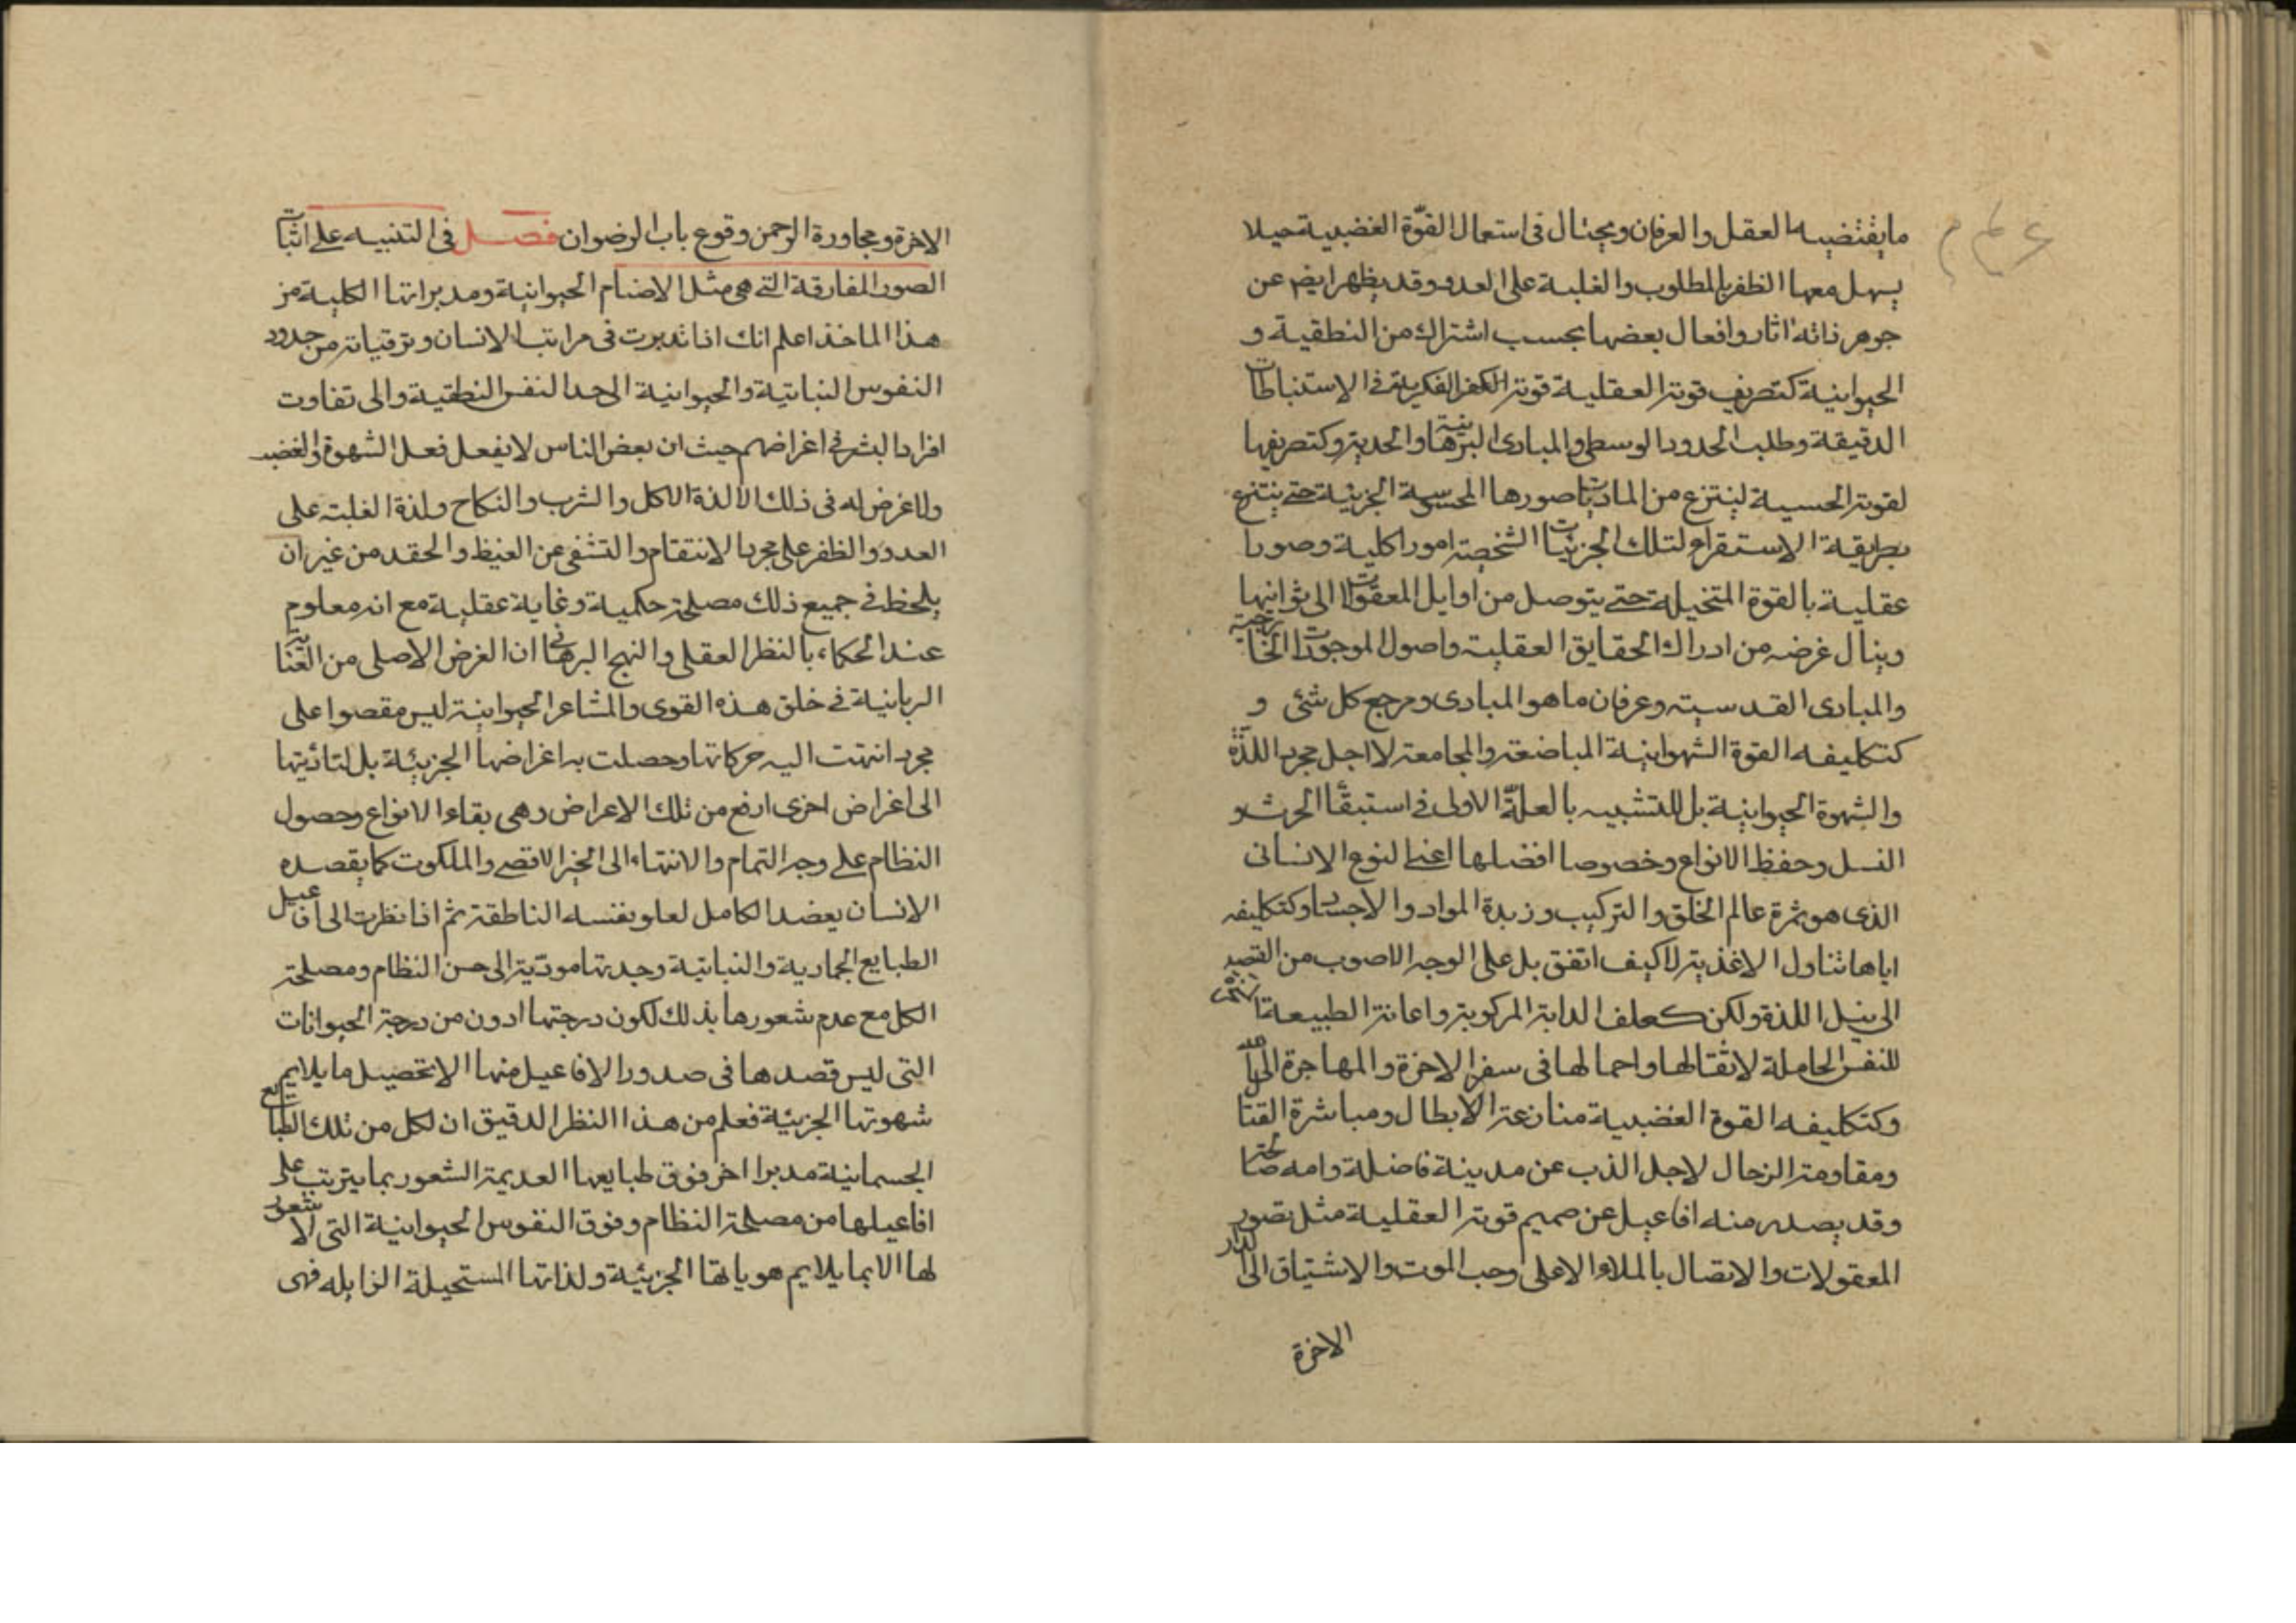 ما يقتضيه العقل والعرفان ويحتال فى استعمال القوّة الغضبية حيلا
يسهل معها الظفر بالمطلوب والغلبة على العدو وقد يظهر ايضا عن
جوهر ذاته اثار وافعال بعضها بحسب اشتراك من النطقية و
الحيوانية كتصريف قوته العقلية قوته الفكرية فى الاستنباطات
الدقيقة وطلب الحدود الوسطى والمبادى البرهانية والحدية وكتصريفها
لقوته الحسية لينتزع من الماديات صورها المحسوسة الجزئية حتى ينتزع
بطريقة الاستقراء لتلك الجزئيات الشخصية امورا كلية وصورا
عقلية بالقوة المتخيلة حتى يتوصل من اوايل المعقولات الى ثوانيها
وينال غرضه من ادراك الحقايق العقلية واصول الموجودات الخارجية
والمبادى القدسية وعرفان ما هو المبادى ومرجع كل شئ و
كتكليفه القوة الشهوانية المباضعة والمجامعة لا اجل مجرد اللذّة
والشهوة الحيوانية بل للتشبيه بالعلّة الاولى فى استبقاء الحرث و
النسل وحفظ الانواع وخصوصا افضلها اعنى النوع الانسانى
الذى هو ثمرة عالم الخلق والتركيب وزبدة المواد والاجساد وكتكليفه
اياها تناول الاغذية لا كيف اتفق بل على الوجه الاصوب من القصد
الى نيل اللذة ولكن كعلف الدابة المركوبة واعانة الطبيعة
للنفس الحاملة لاثقالها واحمالها فى سفر الاخرة والمهاجرة الى
وكتكليفه القوة الغضبية منازعة الابطال ومباشرة القتال
ومقاومة الرجال لاجل الذب عن مدينة فاضلة وامه صالحة
وقد يصدر منه افاعيل عن صميم قوته العقلية مثل تصور
المعقولات والاتصال بالملاء الاعلى وحب الموت والاشتياق الى الدار
الاخرة
الاخرة ومجاورة الرحمن وقوع باب الرضوان فصل فى التنبيه على اثبات
الصور المفارقة التى هى مثل الاصنام الحيوانية ومدبراتها الكلية من
هذا الماخذ اعلم انك اذا تدبرت فى مراتب الانسان وترقياته من حدود
النفوس النباتية والحيوانية الى حد النفس النطقية والى تفاوت
افراد البشر فى اغراضهم حيث ان بعض الناس لا يفعل فعل الشهوة والغضب
ولا غرض له فى ذلك الا لذة الاكل والشرب والنكاح ولذة الغلبة على
العدو والظفر على مجرد الانتقام والتشفى عن الغيظ والحقد من غير ان
يلحظ فى جميع ذلك مصلحة حكمية وغاية عقلية مع انه معلوم
عند الحكماء بالنظر العقلى والنهج البرهانى ان الغرض الاصلى من العناية
الربانية فى خلق هذه القوى والمشاعر الحيوانية ليس مقصوا على
مجرد انتهت اليه حركاتها وحصلت به اغراضها الجزيئة بل لتاديتها
الى اغراض اخرى ارفع من تلك الاعراض وهى بقاء الانواع وحصول
النظام على وجه التمام والانتهاء الى الخير الاقصى والملكوت كما يقصده
الانسان بعضد الكامل لعلو نفسه الناطقة ثم اذا نظرت الى افاعيل
الطبايع الجمادية والنباتية وجدتها مودّية الى حسن النظام ومصلحة
الكل مع عدم شعورها بذلك لكون درجتها ادون من درجة الحيوانات
التى ليس قصدها فى صدور الافاعيل منها الا تحصيل ما يلايم
شهوتها الجزيئة فعلم من هذا النظر الدقيق ان لكل من تلك الطبايع
الجسمانية مدبرا اخر فوق طبايعها العديمة الشعور بما يترتب على
افاعيلها من مصلحة النظام وفوق النفوس الحيوانية التى لا شعور
لها الا بما يلايم هوياتها الجزيئة ولذاتها المستحيلة الزايله فهى